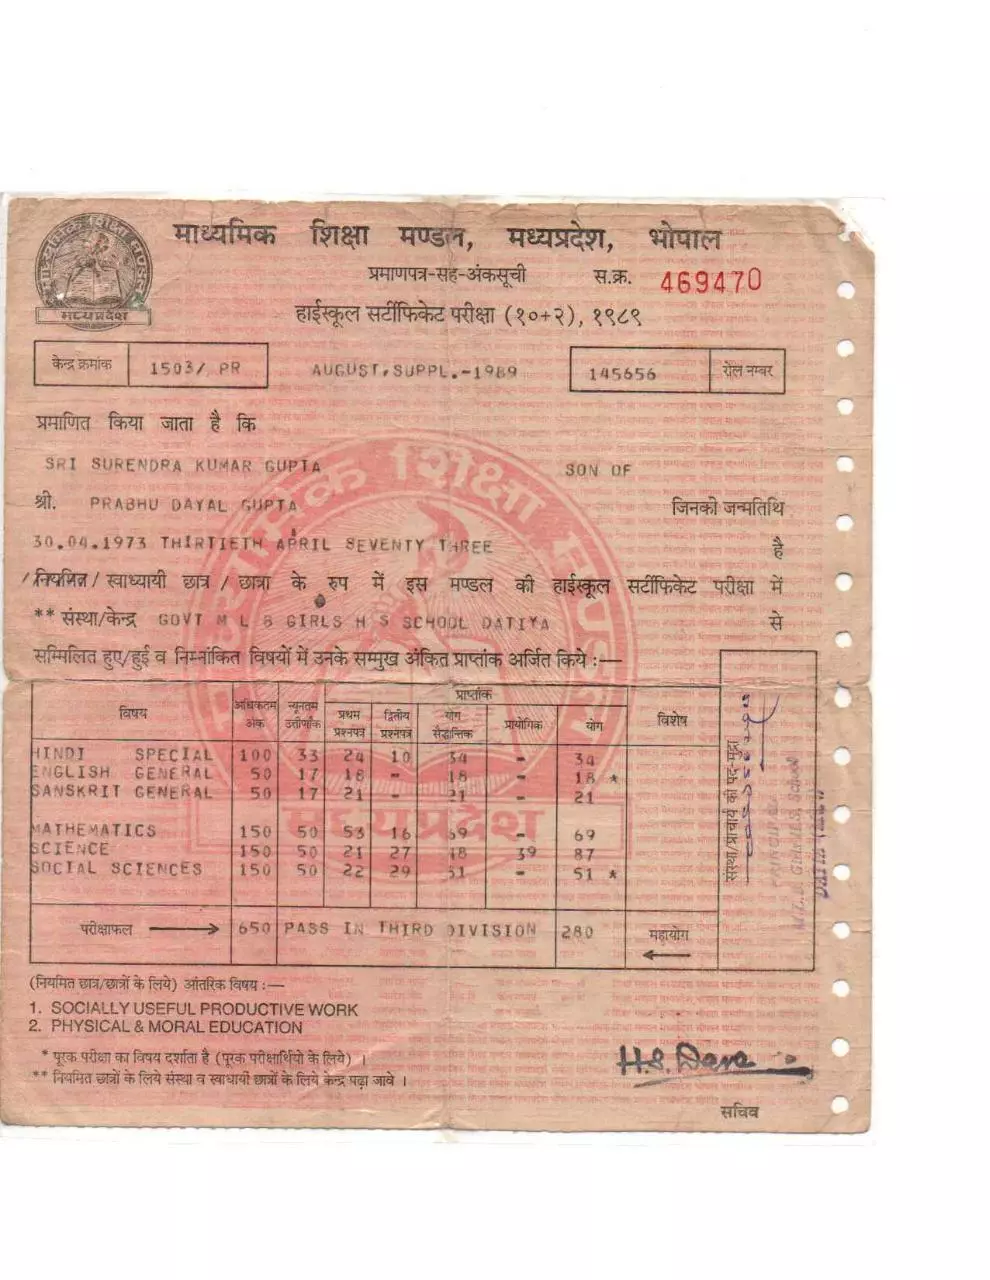 माध्यमिक शिक्षा मण्डल, मध्यप्रदेश, भोपाल
मध्यप्रदेश
प्रमाणपत्र-सह-अंकसूची स.क्र. 469470
हाईस्कूल सर्टीफिकेट परीक्षा (१०+२), १९८९
केन्द्र क्रमांक 1503/ PR AUGUST,SUPPL.-1989 145656 रोल नम्बर
प्रमाणित किया जाता है कि
SRI SURENDRA KUMAR GUPTA SON OF
श्री. PRABHU DAYAL GUPTA जिनकी जन्मतिथि
30.04.1973 THIRTIETH APRIL SEVENTY THREE है
/नियमित / स्वाध्यायी छात्र / छात्रा के रुप में इस मण्डल की हाईस्कूल सर्टीफिकेट परीक्षा में
** संस्था/केन्द्र GOVT M L B GIRLS H S SCHOOL DATIYA से
सम्मिलित हुए/हुई व निम्नांकित विषयों में उनके सम्मुख अंकित प्राप्तांक अर्जित किये :—
विषय अधिकतम अंक न्यूनतम उत्तीर्णांक प्राप्तांक विशेष
प्रथम प्रश्नपत्र द्वितीय प्रश्नपत्र योग सैद्धान्तिक प्रायोगिक योग
HINDI SPECIAL 100 33 24 10 34 - 34
ENGLISH GENERAL 50 17 18 - 18 - 18 *
SANSKRIT GENERAL 50 17 21 - 21 - 21
MATHEMATICS 150 50 53 16 69 - 69
SCIENCE 150 50 21 27 48 39 87
SOCIAL SCIENCES 150 50 22 29 51 - 51 *
परीक्षाफल 650 PASS IN THIRD DIVISION 280 महायोग
संस्था/प्राचार्य की पद-मुद्रा
(नियमित छात्र/छात्रों के लिये) आंतरिक विषय :—
1. SOCIALLY USEFUL PRODUCTIVE WORK
2. PHYSICAL & MORAL EDUCATION
* पूरक परीक्षा का विषय दर्शाता है (पूरक परीक्षार्थियो के लिये) ।
** नियमित छात्रों के लिये संस्था व स्वाधायी छात्रों के लिये केन्द्र पढ़ा जावे ।
H.S. Dave
सचिव